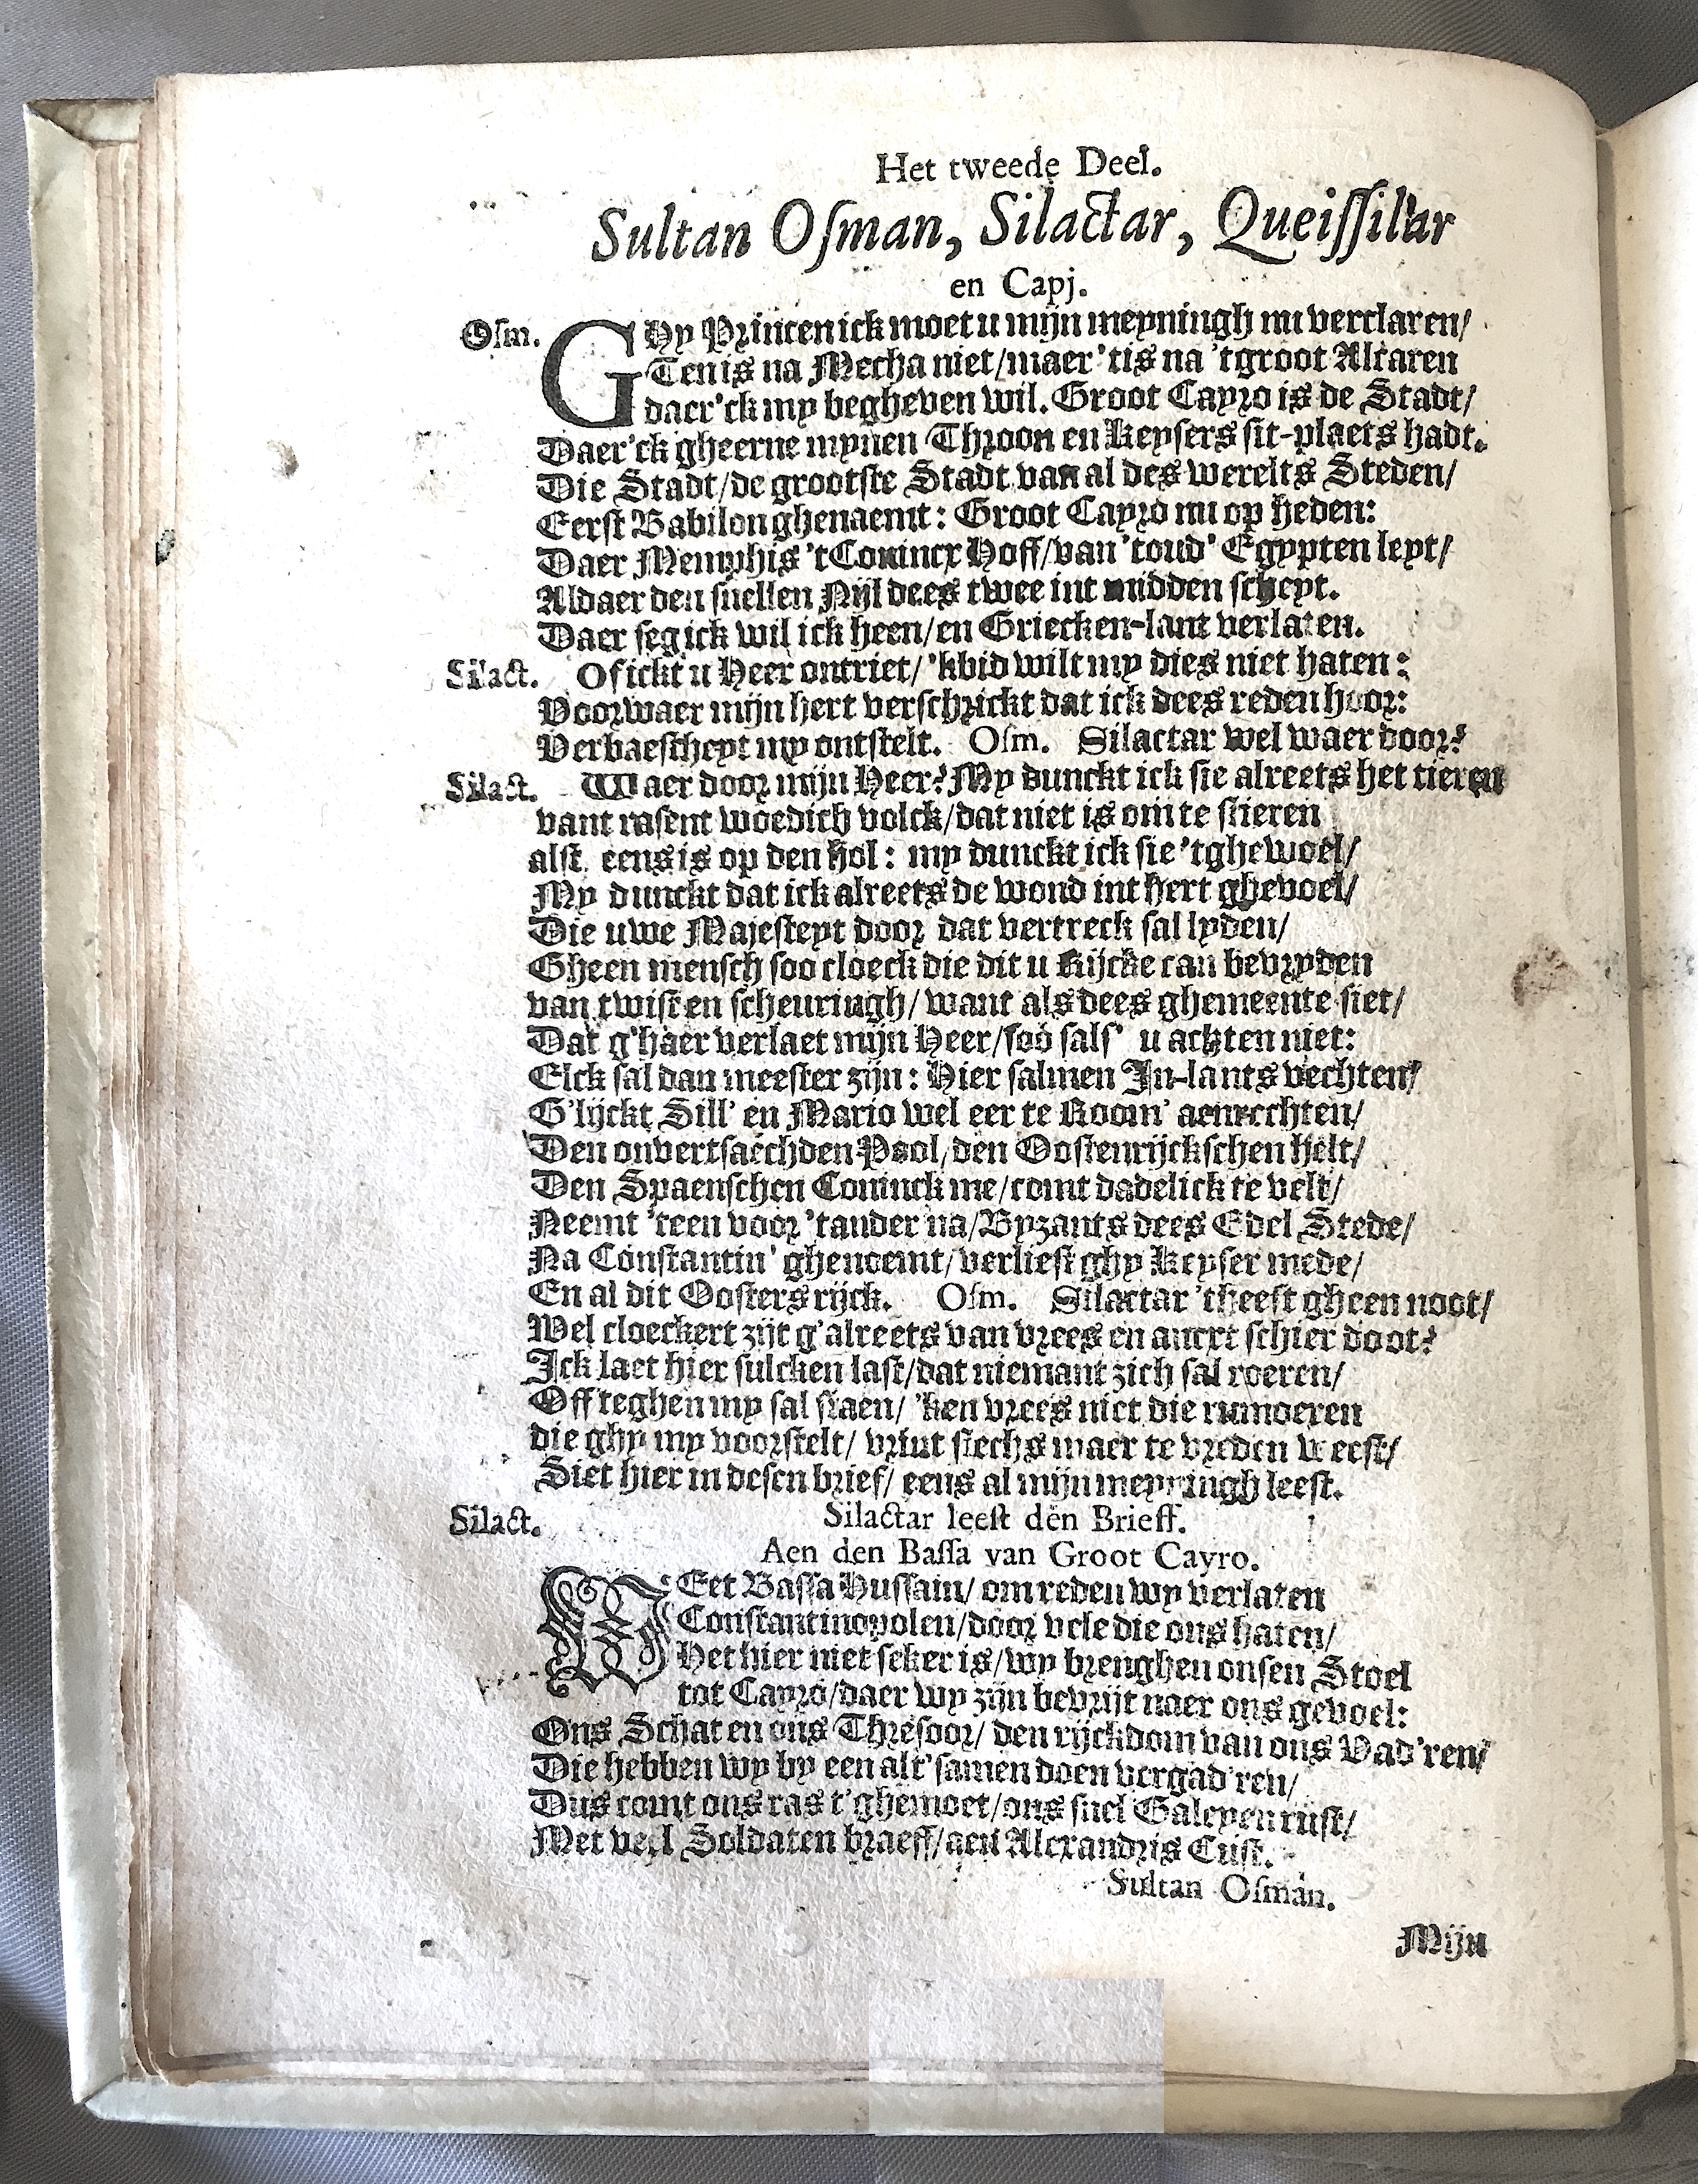 Het tweede Deel.
Sultan Oſman, Silactar, Queiſſilar
en Capj.
Oſm. GHy Princen ick moet u mijn meyningh nu verclaren/
Ten is na Mecha niet/maer 'tis na 'tgroot Altaren
daer'ck my begheven wil. Groot Cayro is de Stadt/
Daer'ck gheerne mynen Throon en Keysers sit-plaets hadt.
Die Stadt/de grootste Stadt van al des werelts Steden/
Eerst Babilon ghenaemt: Groot Cayro nu op heden:
Daer Memphis 't Conincx Hoff/van 'toud' Egypten leyt/
Aldaer den snellen Nijl dees twee int midden scheyt.
Daer seg ick wil ick heen/en Griecken-lant verlaten.
Silact. Of ickt u Heer ontriet/'kbid wilt my dies niet haten:
Voorwaer mijn hert verschrickt dat ick dees reden hoor:
Verbaestheyt my ontstelt. Oſm. Silactar wel waer door?
Silact. Waer door mijn Heer? My dunckt ick sie alreets het tieren
vant rasent woedich volck/dat niet is om te stieren
alst eens is op den hol: my dunckt ick sie 'tghewoel/
My dunckt dat ick alreets de wond int hert ghevoel/
Die uwe Majesteyt door dat vertreck sal lyden/
Gheen mensch soo cloeck die dit u Rijcke can bevryden
van twist en scheuringh/want als dees ghemeente siet/
Dat g'haer verlaet mijn Heer/soo sals' u achten niet:
Elck sal dan meester zijn: Hier salmen In-lants vechten/
G'lijckt Sill' en Mario wel eer te Room' aenrechten/
Den onvertsaechden Pool/den Oostenrijckschen Helt/
Den Spaenschen Coninck me/comt dadelick te velt/
Neemt 'teen voor 'tander na/Byzants dees Edel Stede/
Na Constantin' ghenoemt/verliest ghy Keyser mede/
En al dit Oosters rijck. Oſm. Silactar 'theeft gheen noot/
Wel cloeckert zijt g'alreets van vrees en ancxt schier doot?
Ick laet hier sulcken last/dat niemant zich sal roeren/
Off teghen my sal staen/'ken vrees niet die rumoeren
die ghy my voorstelt/vrint slechs maer te vreden weest/
Siet hier in desen brief/eens al mijn meyningh leest.
Silact. Silactar leest den Brieff.
Aen den Baſſa van Groot Cayro.
WEet Bassa Hussain/om reden wy verlaten
Constantinopolen/door vele die ons haten/
Het hier niet seker is/wy brenghen onsen Stoel
tot Cayro/daer wy zijn bevrijt naer ons gevoel:
Ons Schat en ons Thresoor/den rijckdom van ons Vad'ren/
Die hebben wy by een alt'samen doen vergad'ren/
Dus comt ons ras t'ghemoet/ons snel Galeyen rust/
Met veel Soldaten braeff/aen Alexandris Cust.
Sultan Oſman.
Mijn